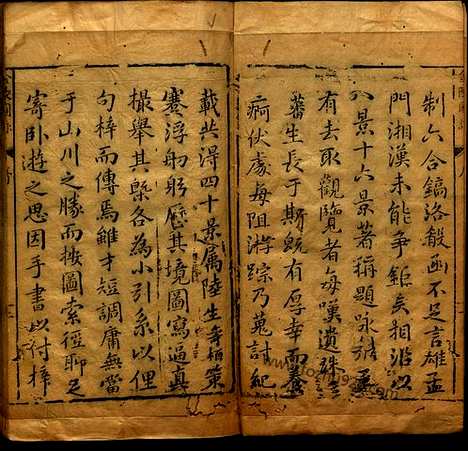 制六合鎬洛殽函不足言雄孟
門湘漢未能爭鉅矣相沿以
八景十六景著稱題詠
有去取觀覽者每嘆遺珠
蕃生長于斯既有厚幸而養
痾伏處每阻游蹤乃蒐討紀
載共得四十景屬陸生壽栢策
蹇浮舠躬歷其境圖寫逼真
撮舉其槩各為小引系以俚
句梓而傳焉雖才短調庸無當
于山川之勝而按圖索徑聊足
寄臥遊之思因手書以付梓